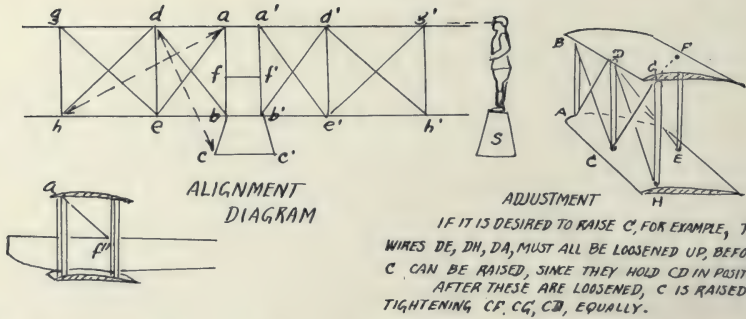 g d a a' d' g'
f f'
h e b b' e' h'
c c'
S
ALIGNMENT
DIAGRAM
a
f"
B D G F
A
C E
H
ADJUSTMENT
IF IT IS DESIRED TO RAISE C, FOR EXAMPLE, T
WIRES DE, DH, DA, MUST ALL BE LOOSENED UP, BEFO
C CAN BE RAISED, SINCE THEY HOLD CD IN POSIT
AFTER THESE ARE LOOSENED, C IS RAISED
TIGHTENING CF, CG, CB, EQUALLY.